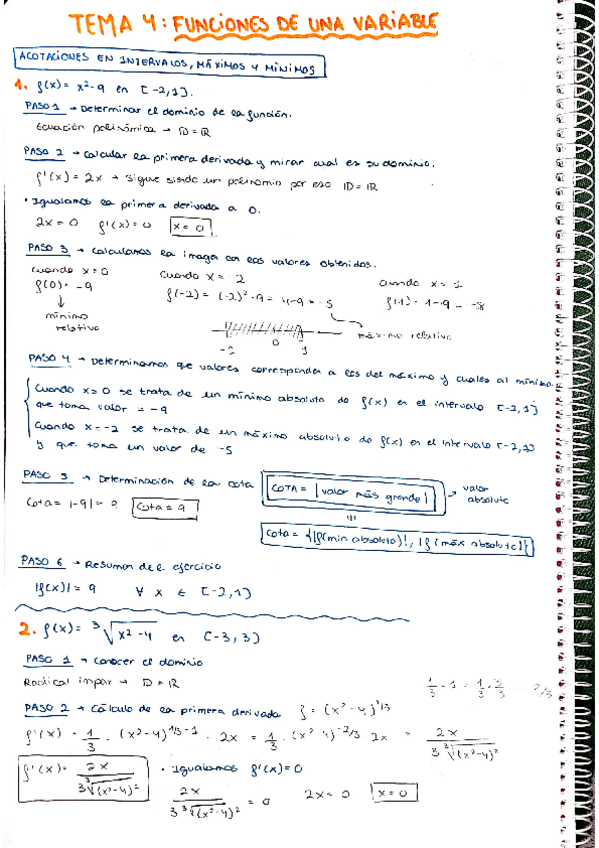 TEMA 4: FUNCIONES DE UNA VARIABLE
ACOTACIONES EN INTERVALOS, MÁXIMOS Y MÍNIMOS
1. f(x) = x²-9 en [-2,1].
PASO 1 → Determinar el dominio de la función.
Ecuación polinómica → D = R
PASO 2 → Calcular la primera derivada y mirar cual es su dominio.
f'(x) = 2x → Sigue siendo un polinomio por eso D = R
• Igualamos la primera derivada a 0.
2x = 0 f'(x) = 0 x = 0
PASO 3 → Calculamos la imagen con los valores obtenidos.
Cuando x = 0 Cuando x = -2 Cuando x = 1
f(0) = -9 f(-2) = (-2)²-9 = 4-9 = -5 f(1) = 1-9 = -8
↓
mínimo
relativo máximo relativo
-2 0 1
PASO 4 → Determinamos que valores corresponden a los del máximo y cuales al mínimo.
Cuando x = 0 se trata de un mínimo absoluto de f(x) en el intervalo [-2,1]
que toma valor = -9
Cuando x = -2 se trata de un máximo absoluto de f(x) en el intervalo [-2,1]
y que toma un valor de -5
PASO 5 → Determinación de la cota COTA = |valor más grande| → valor
absoluto
Cota = |-9| = 9 Cota = 9
Cota = {|f(mín absoluto)|, |f(máx absoluto)|}
PASO 6 → Resumen del ejercicio
|f(x)| = 9 ∀ x ∈ [-2,1]
2. f(x) = ³√x²-4 en [-3,3]
PASO 1 → Conocer el dominio
Radical impar → D = R
1/3 - 1 = 1/3 - 3/3 = -2/3
PASO 2 → Cálculo de la primera derivada f = (x²-4)^1/3
f'(x) = 1/3 · (x²-4)^1/3-1 · 2x = 1/3 · (x²-4)^-2/3 · 2x = 2x / 3 ³√(x²-4)²
f'(x) = 2x / 3 ³√(x²-4)² • Igualamos f'(x) = 0
2x / 3 ³√(x²-4)² = 0 2x = 0 x = 0